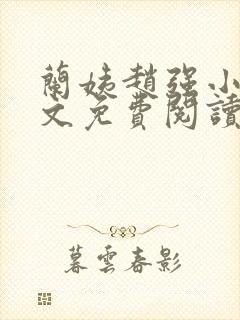 蘭姨趙强小
文免費閱讀
暮雲春影